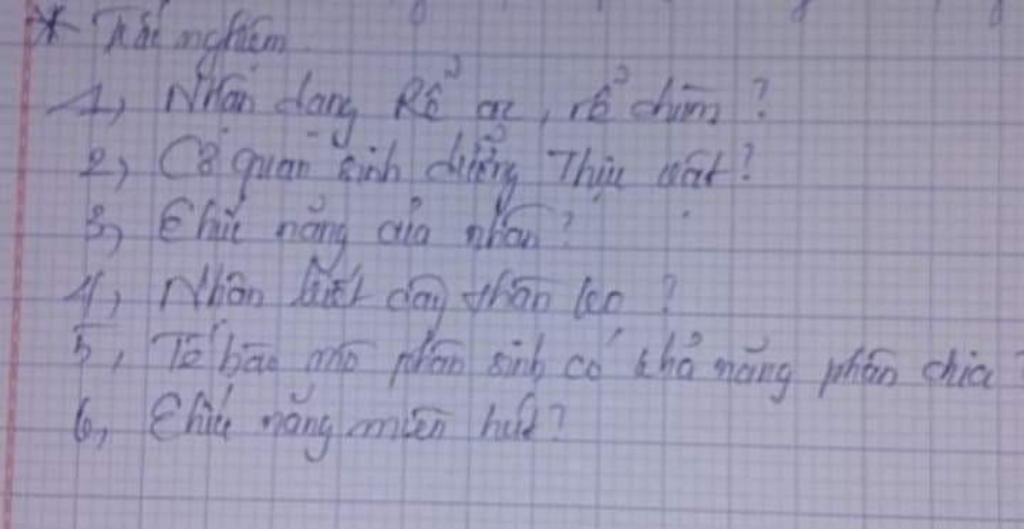 * Trắc nghiệm
1, Nhận dạng Rễ cọc, rễ chùm ?
2, Cơ quan sinh dưỡng Thực vật ?
3, Chức năng của nhân ?
4, Nhận biết cây thân leo ?
5, Tế bào mô phân sinh có khả năng phân chia ?
6, Chức năng miền hút ?